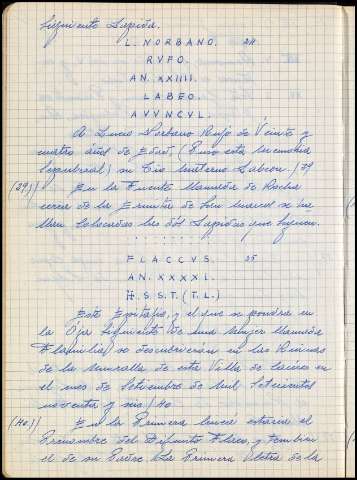 Siguiente Lapida.
L. NORBANO. 24
RVFO.
AN. XXIIII.
LABEO.
AVVNCVL.
A Lucio Norbano Rufo de Veinte y
cuatro años de Edad, (Puso esta memoria
Sepulcral) su Tio materno Labeon. / 39
(39)) En la Fuente llamada de Rocha
cerca de la Ermita de San Marcos se ha
llan Colocadas las dos Lapidas que siguen.
FLACCVS. 25
AN. XXXXI.
H. S. S. T. (T. L.)
Este Epitafio, y el que se pondra en
la Oja siguiente de una Muger llamada
se descubrieron en las Ruinas
de la Muralla de esta Villa de Caceres en
el mes de Setiembre de mil Setecientos
noventa y seis / 40
(40)) En la Primera linea estaria el
Prenombre del Difunto Flaco, y tambien
el de su Padre. La Primera letra de la